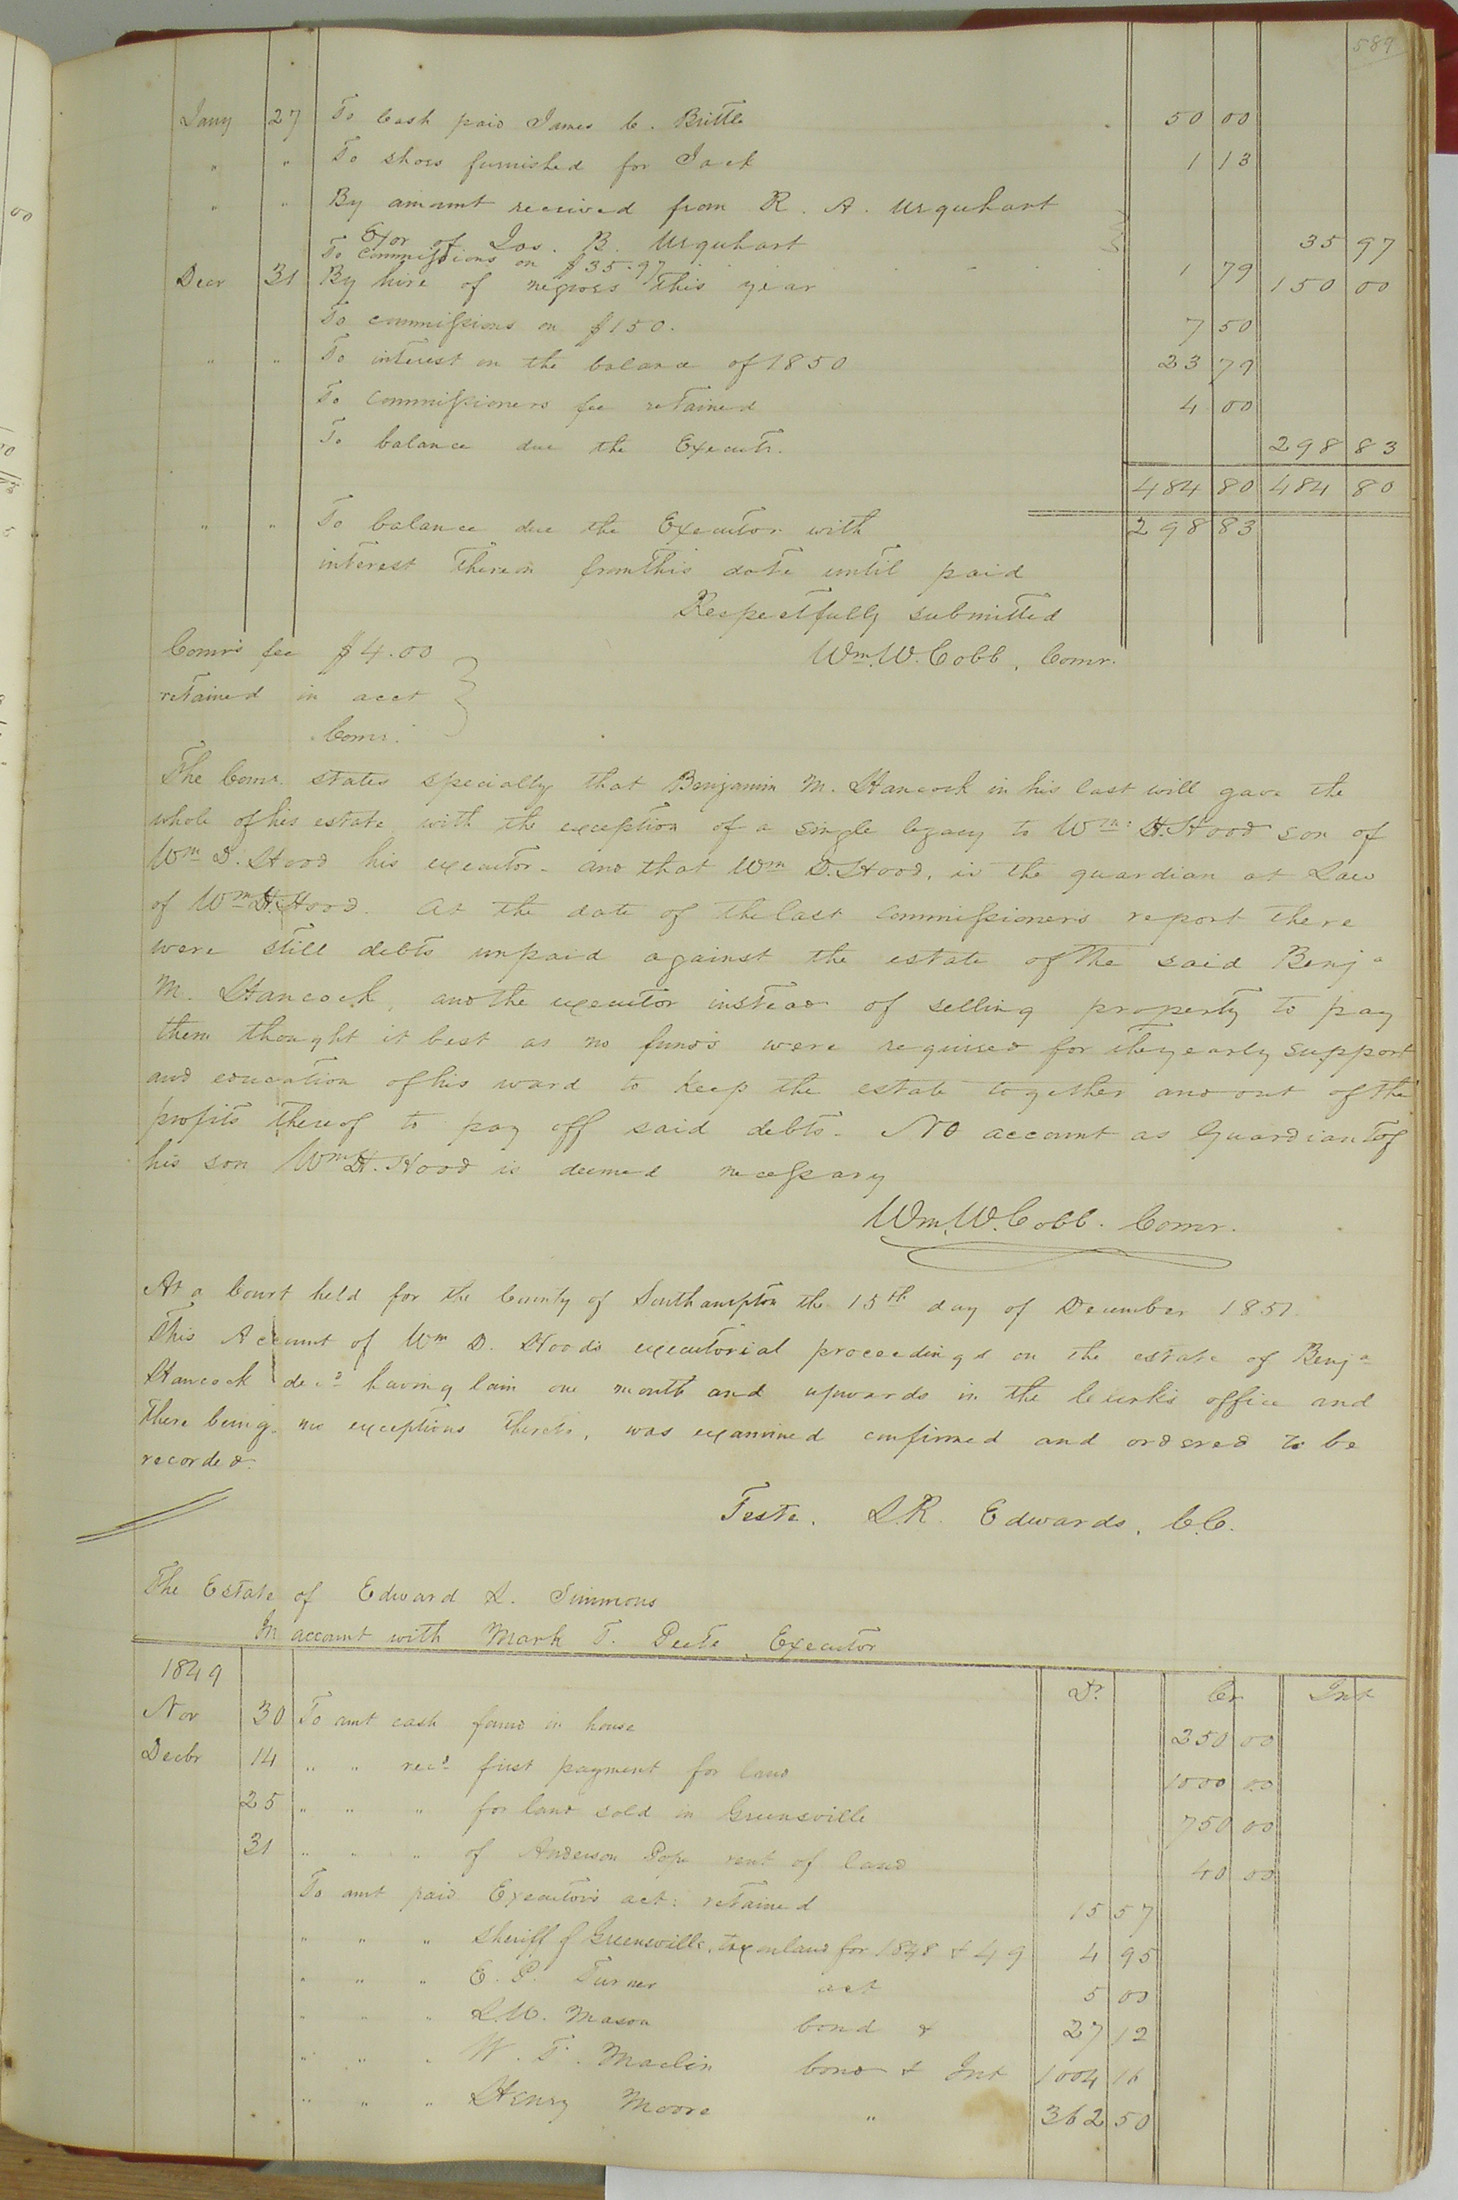 589
Jany 27 To Cash paid James C. Brittle 50 00
" " To shoes furnished for Jack 1 13
" " By amount received from R. A. Urquhart
Exor of Jas. B. Urquhart 35 97
To commissions on $35.97 1 79
Decr 31 By hire of negroes this year 150 00
To commissions on $150. 7 50
" " To interest on the balance of 1850 23 79
To commissioners fee retained 4 00
To balance due the Executr. 298 83
484 80 484 80
" " To balance due the Executor with 298 83
interest thereon from this date until paid
Respectfully submitted
Wm. W. Cobb, Comr.
Comrs fee $4.00
retained in acct
Comr.
The Comr. states specially that Benjamin M. Hancock in his last will gave the
whole of his estate with the exception of a single legacy to Wm: H. Hood son of
Wm D. Hood his executor - and that Wm D. Hood, is the guardian at Law
of Wm H. Hood. At the date of the last commissioners report there
were still debts unpaid against the estate of the said Benja
M. Hancock, and the executor instead of selling property to pay
them thought it best as no funds were required for the yearly support
and education of his ward to keep the estate together and out of the
profits thereof to pay off said debts - No account as Guardian of
his son Wm H. Hood is deemed necessary
Wm. W. Cobb. Comr.
At a Court held for the County of Southampton the 15th day of December 1851.
This Account of Wm D. Hoods executorial proceedings on the estate of Benja
Hancock decd having lain one month and upwards in the Clerk's office and
there being no exceptions thereto, was examined confirmed and ordered to be
recorded.
Teste. L.R. Edwards, C.C.
The Estate of Edward L. Simmons
In account with Mark T. Peete, Executor
1849 Dr Cr Int
Nov 30 To amt cash found in house 250 00
Decbr 14 " " recd first payment for land 1000 00
25 " " " for land sold in Greensville 750 00
31 " " " of Anderson Pope rent of land 40 00
To amt paid Executor's act: retained 15 57
" " " Sheriff of Greensville, tax on land for 1848 & 49 4 95
" " " E. P. Turner act 5 00
" " " L.W. Mason bond & 27 12
" " " W. T. Maclin bond & Int 1004 16
" " " Henry Moore " 362 50